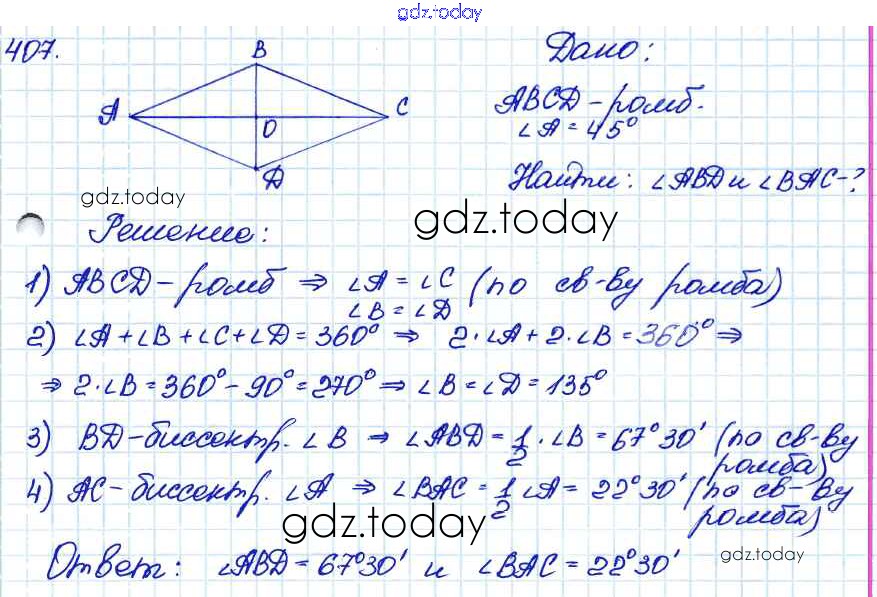 gdz.today
407.
B
A
C
O
D
Дано:
ABCD - ромб.
∠A = 45°
Найти: ∠ABD и ∠BAC - ?
gdz.today
gdz.today
Решение:
1) ABCD - ромб ⇒ ∠A = ∠C (по св-ву ромба)
∠B = ∠D
2) ∠A + ∠B + ∠C + ∠D = 360° ⇒ 2·∠A + 2·∠B = 360° ⇒
⇒ 2·∠B = 360° - 90° = 270° ⇒ ∠B = ∠D = 135°
3) BD - биссектр. ∠B ⇒ ∠ABD = 1/2 · ∠B = 67°30' (по св-ву
ромба)
4) AC - биссектр. ∠A ⇒ ∠BAC = 1/2 ∠A = 22°30' (по св-ву
ромба)
gdz.today
Ответ: ∠ABD = 67°30' и ∠BAC = 22°30'
gdz.today